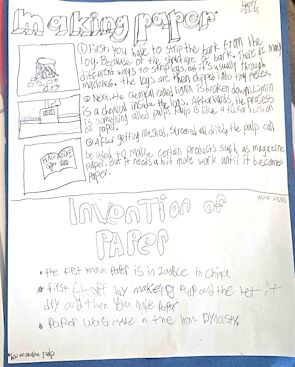 making paper
① First, you have to strip the bark from the
log. Because of the structure of bark. There are many
different ways to strip logs, but it's usually through
machines. The logs are then chipped into tiny pieces.
② Next, the chemical called lignin is broken down. Lignin
is a chemical inside the logs. Afterwards, the process
is something called pulp. Pulp is like a thicker version
of paper.
③ After getting washed, screened and dried, the pulp can
be used to make certain products such as magazine
paper. But it needs a bit more work until it becomes
paper.
Invention of
PAPER
• the first known paper is in 200bce in china
• first by making pulp and the let it
dry and then you have paper
• Paper was made in the han DYNASTY.
*how to make pulp